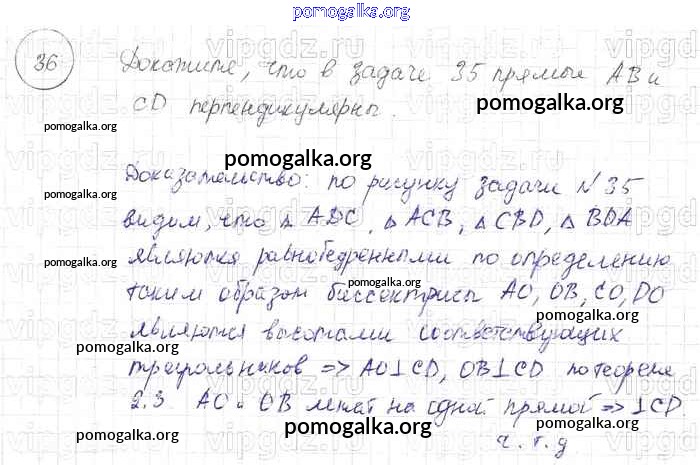 pomogalka.org
36
Докажите, что в задаче 35 прямые AB и
CD перпендикулярны.
pomogalka.org
pomogalka.org
pomogalka.org
Доказательство: по рисунку задачи №35
видим, что △ ADC, △ ACB, △ CBD, △ BDA
pomogalka.org
являются равнобедренными по определению
pomogalka.org
pomogalka.org
таким образом биссектрисы AO, OB, CO, DO
являются высотами соответствующих
pomogalka.org
pomogalka.org
треугольников => AO⊥CD, OB⊥CD по теореме
2.3. AO и OB лежат на одной прямой => ⊥CD.
pomogalka.org
pomogalka.org
pomogalka.org
ч.т.д